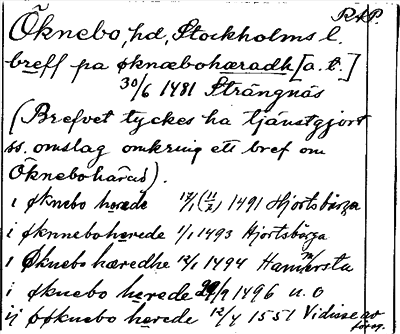 RAP.
Öknebo, hd, Stockholms l.
breff pa øknæbohæradh [a. t.]
30/6 1481 Strängnäs
(Brefvet tyckes ha tjänstgjort
ss. omslag omkring ett bref om
Öknebohärad).
i øknebo herede 17/1 (11/2) 1491 Hjortsbärga
i øknneboherede 1/1 1493 Hjortsbärga
i Øknebo hæredhe 12/1 1494 Hammersta
i øknebo herede 1496 u. o
ij øøknebo herede 12/4 1551 Vidisse av